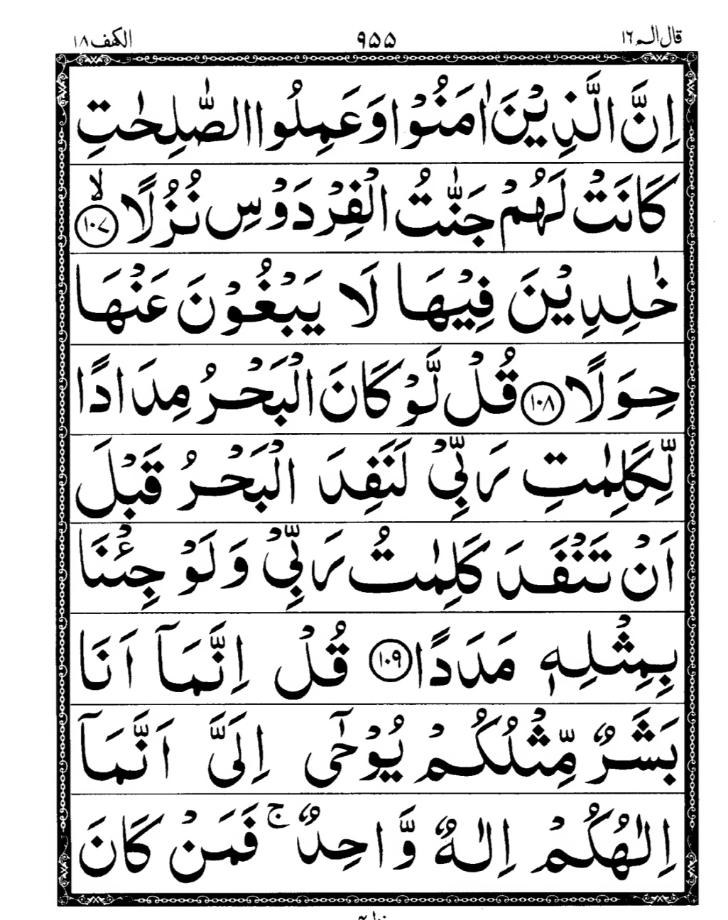 قال الم ١٦ ٩٥٥ الكهف ١٨
اِنَّ الَّذِيْنَ اٰمَنُوْا وَعَمِلُوا الصّٰلِحٰتِ
كَانَتْ لَهُمْ جَنّٰتُ الْفِرْدَوْسِ نُزُلًا ۙ‏ ﴿١٠٧﴾
خٰلِدِيْنَ فِيْهَا لَا يَبْغُوْنَ عَنْهَا
حِوَلًا ﴿١٠٨﴾ قُلْ لَّوْ كَانَ الْبَحْرُ مِدَادًا
لِّكَلِمٰتِ رَبِّيْ لَنَفِدَ الْبَحْرُ قَبْلَ
اَنْ تَنْفَدَ كَلِمٰتُ رَبِّيْ وَلَوْ جِئْنَا
بِمِثْلِهٖ مَدَدًا ﴿١٠٩﴾ قُلْ اِنَّمَآ اَنَا
بَشَرٌ مِّثْلُكُمْ يُوْحٰٓى اِلَيَّ اَنَّمَآ
اِلٰهُكُمْ اِلٰهٌ وَّاحِدٌ ۚ فَمَنْ كَانَ